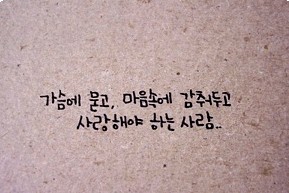 가슴에 묻고, 마음속에 감춰두고
사랑해야 하는 사람..